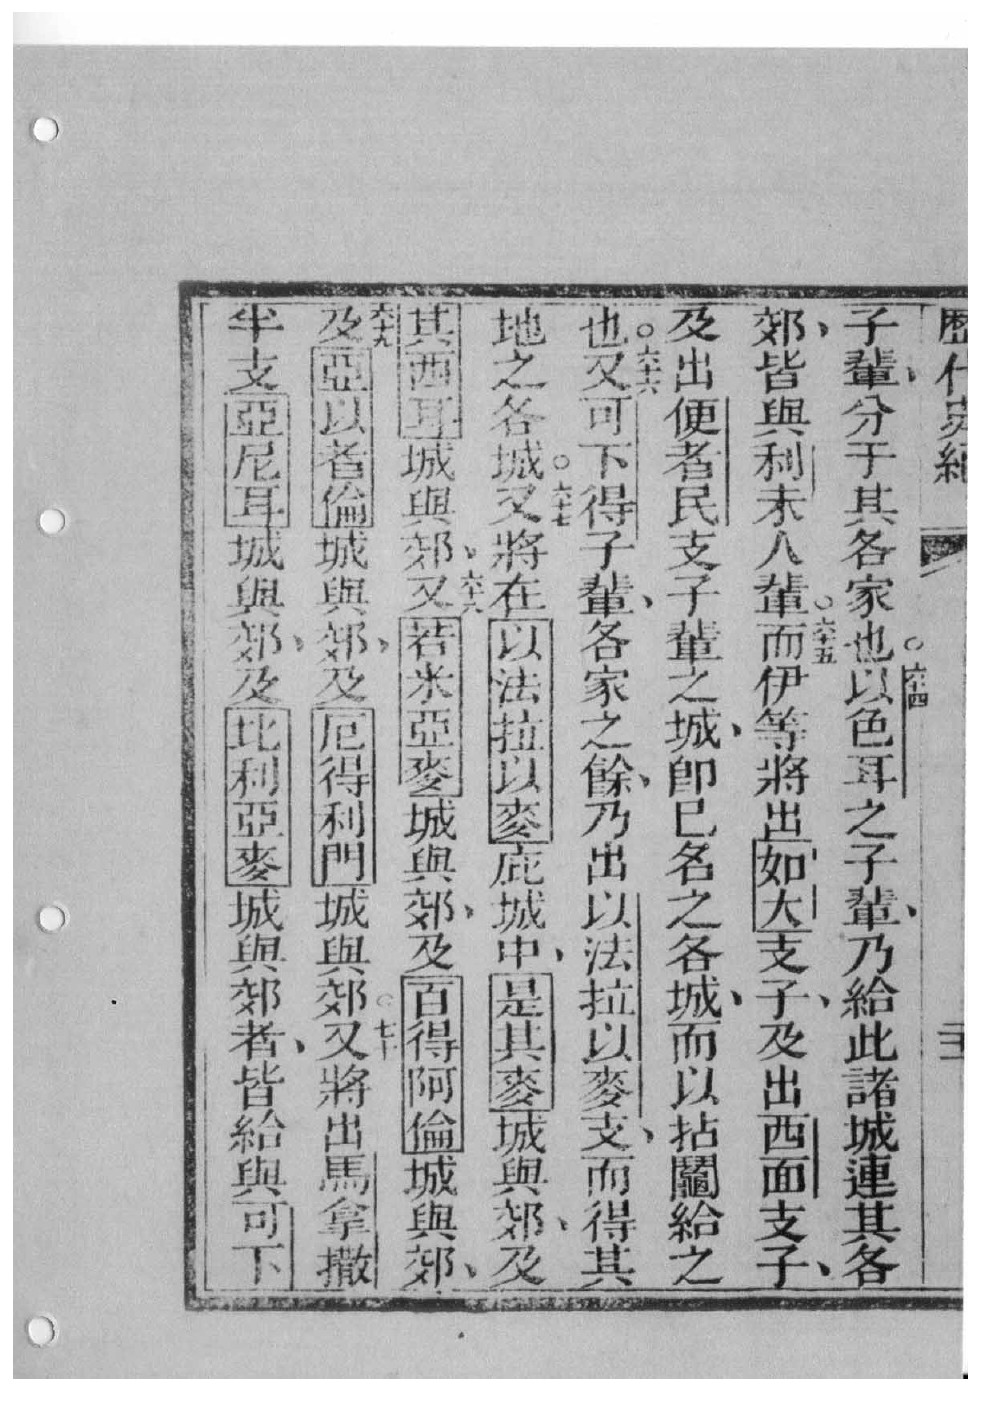 歷代史紀
二十
子輩、分于其各家也。六十四以色耳之子輩、乃給此諸城連其各
郊、皆與利未人輩。六十五而伊等將出如大支子、及出西面支子、
及出便者民支子輩之城、卽已名之各城、而以拈鬮給之
也。六十六又可下得子輩、各家之餘、乃出以法拉以麥支、而得其
地之各城。六十七又將在以法拉以麥庇城中、是其麥城與郊、及
其西耳城與郊、六十八又若米亞麥城與郊、及百得阿倫城與郊、
六十九及亞以者倫城與郊、及厄得利門城與郊。七十又將出馬拿撒
半支亞尼耳城與郊、及比利亞麥城與郊者、皆給與可下